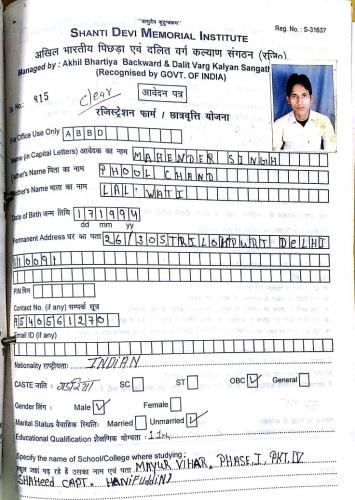 "वसुधैव कुटुम्बकम्"
Reg. No. : S-31637
SHANTI DEVI MEMORIAL INSTITUTE
अखिल भारतीय पिछड़ा एवं दलित वर्ग कल्याण संगठन (रजि०)
Managed by : Akhil Bhartiya Backward & Dalit Varg Kalyan Sangath
(Recognised by GOVT. OF INDIA)
Sr. No. 815
clear
आवेदन पत्र
रजिस्ट्रेशन फार्म / छात्रवृत्ति योजना
Office Use Only ABBD
Name (in Capital Letters) आवेदक का नाम MAHENDER SINGH
Father's Name पिता का नाम PHOOL CHAND
Mother's Name माता का नाम LAL. WATI
Date of Birth जन्म तिथि 171994
dd mm yy
Permanent Address घर का पता 26/305 TRILOKPURI DELHI
110091
PIN पिन
Contact No. (if any) सम्पर्क सूत्र
9540561270
Email ID (if any)
Nationality राष्ट्रीयता: INDIAN
CASTE जाति : गडरिया SC ST OBC ✓ General
Gender लिंग : Male ✓ Female
Marital Status वैवाहिक स्थिति: Married Unmarried ✓
Educational Qualification शैक्षणिक योग्यता : 11th
Specify the name of School/College where studying:
स्कूल जहां पढ़ रहे हैं उसका नाम एवं पता MAYUR VIHAR. PHASE, I, PKT. IV
SHAHEED CAPT. HANIFUDDIN